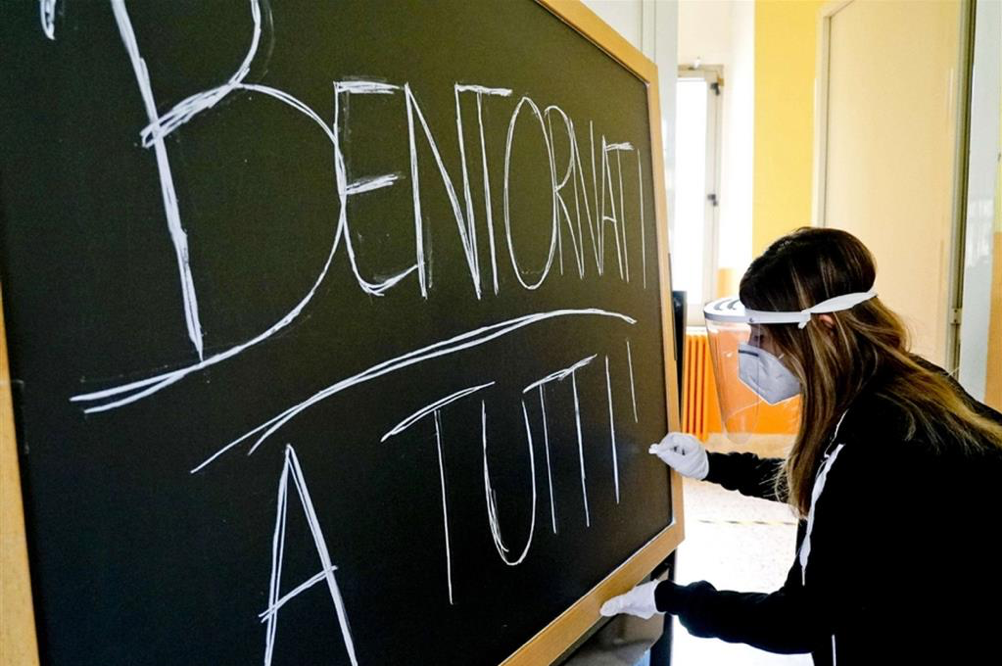 BENTORNATI
A TUTTI!